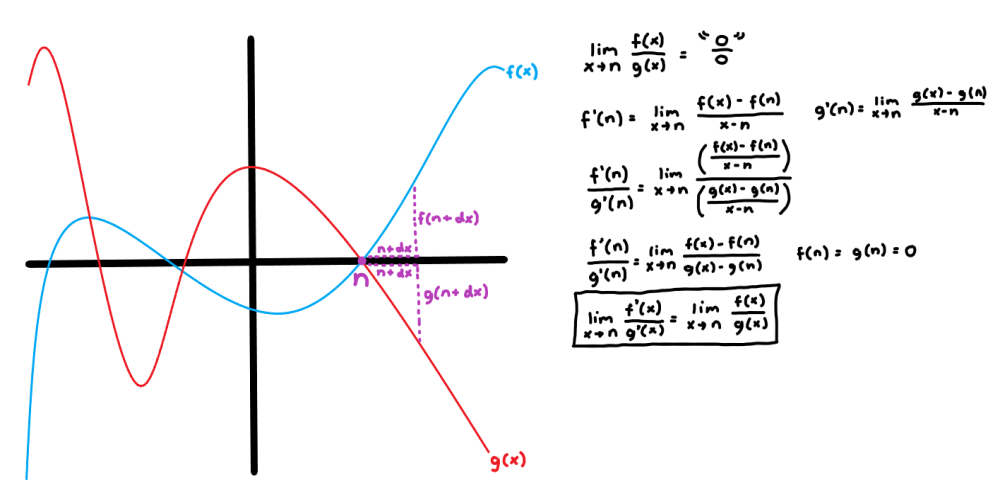 f(x)
f(n+dx)
n+dx
n+dx
n
g(n+dx)
g(x)
lim x→n f(x)/g(x) = "0/0"
f'(n) = lim x→n (f(x) - f(n))/(x-n)
g'(n) = lim x→n (g(x) - g(n))/(x-n)
f'(n)/g'(n) = lim x→n ((f(x) - f(n))/(x-n))/((g(x) - g(n))/(x-n))
f'(n)/g'(n) = lim x→n (f(x) - f(n))/(g(x) - g(n))
f(n) = g(n) = 0
lim x→n f'(x)/g'(x) = lim x→n f(x)/g(x)